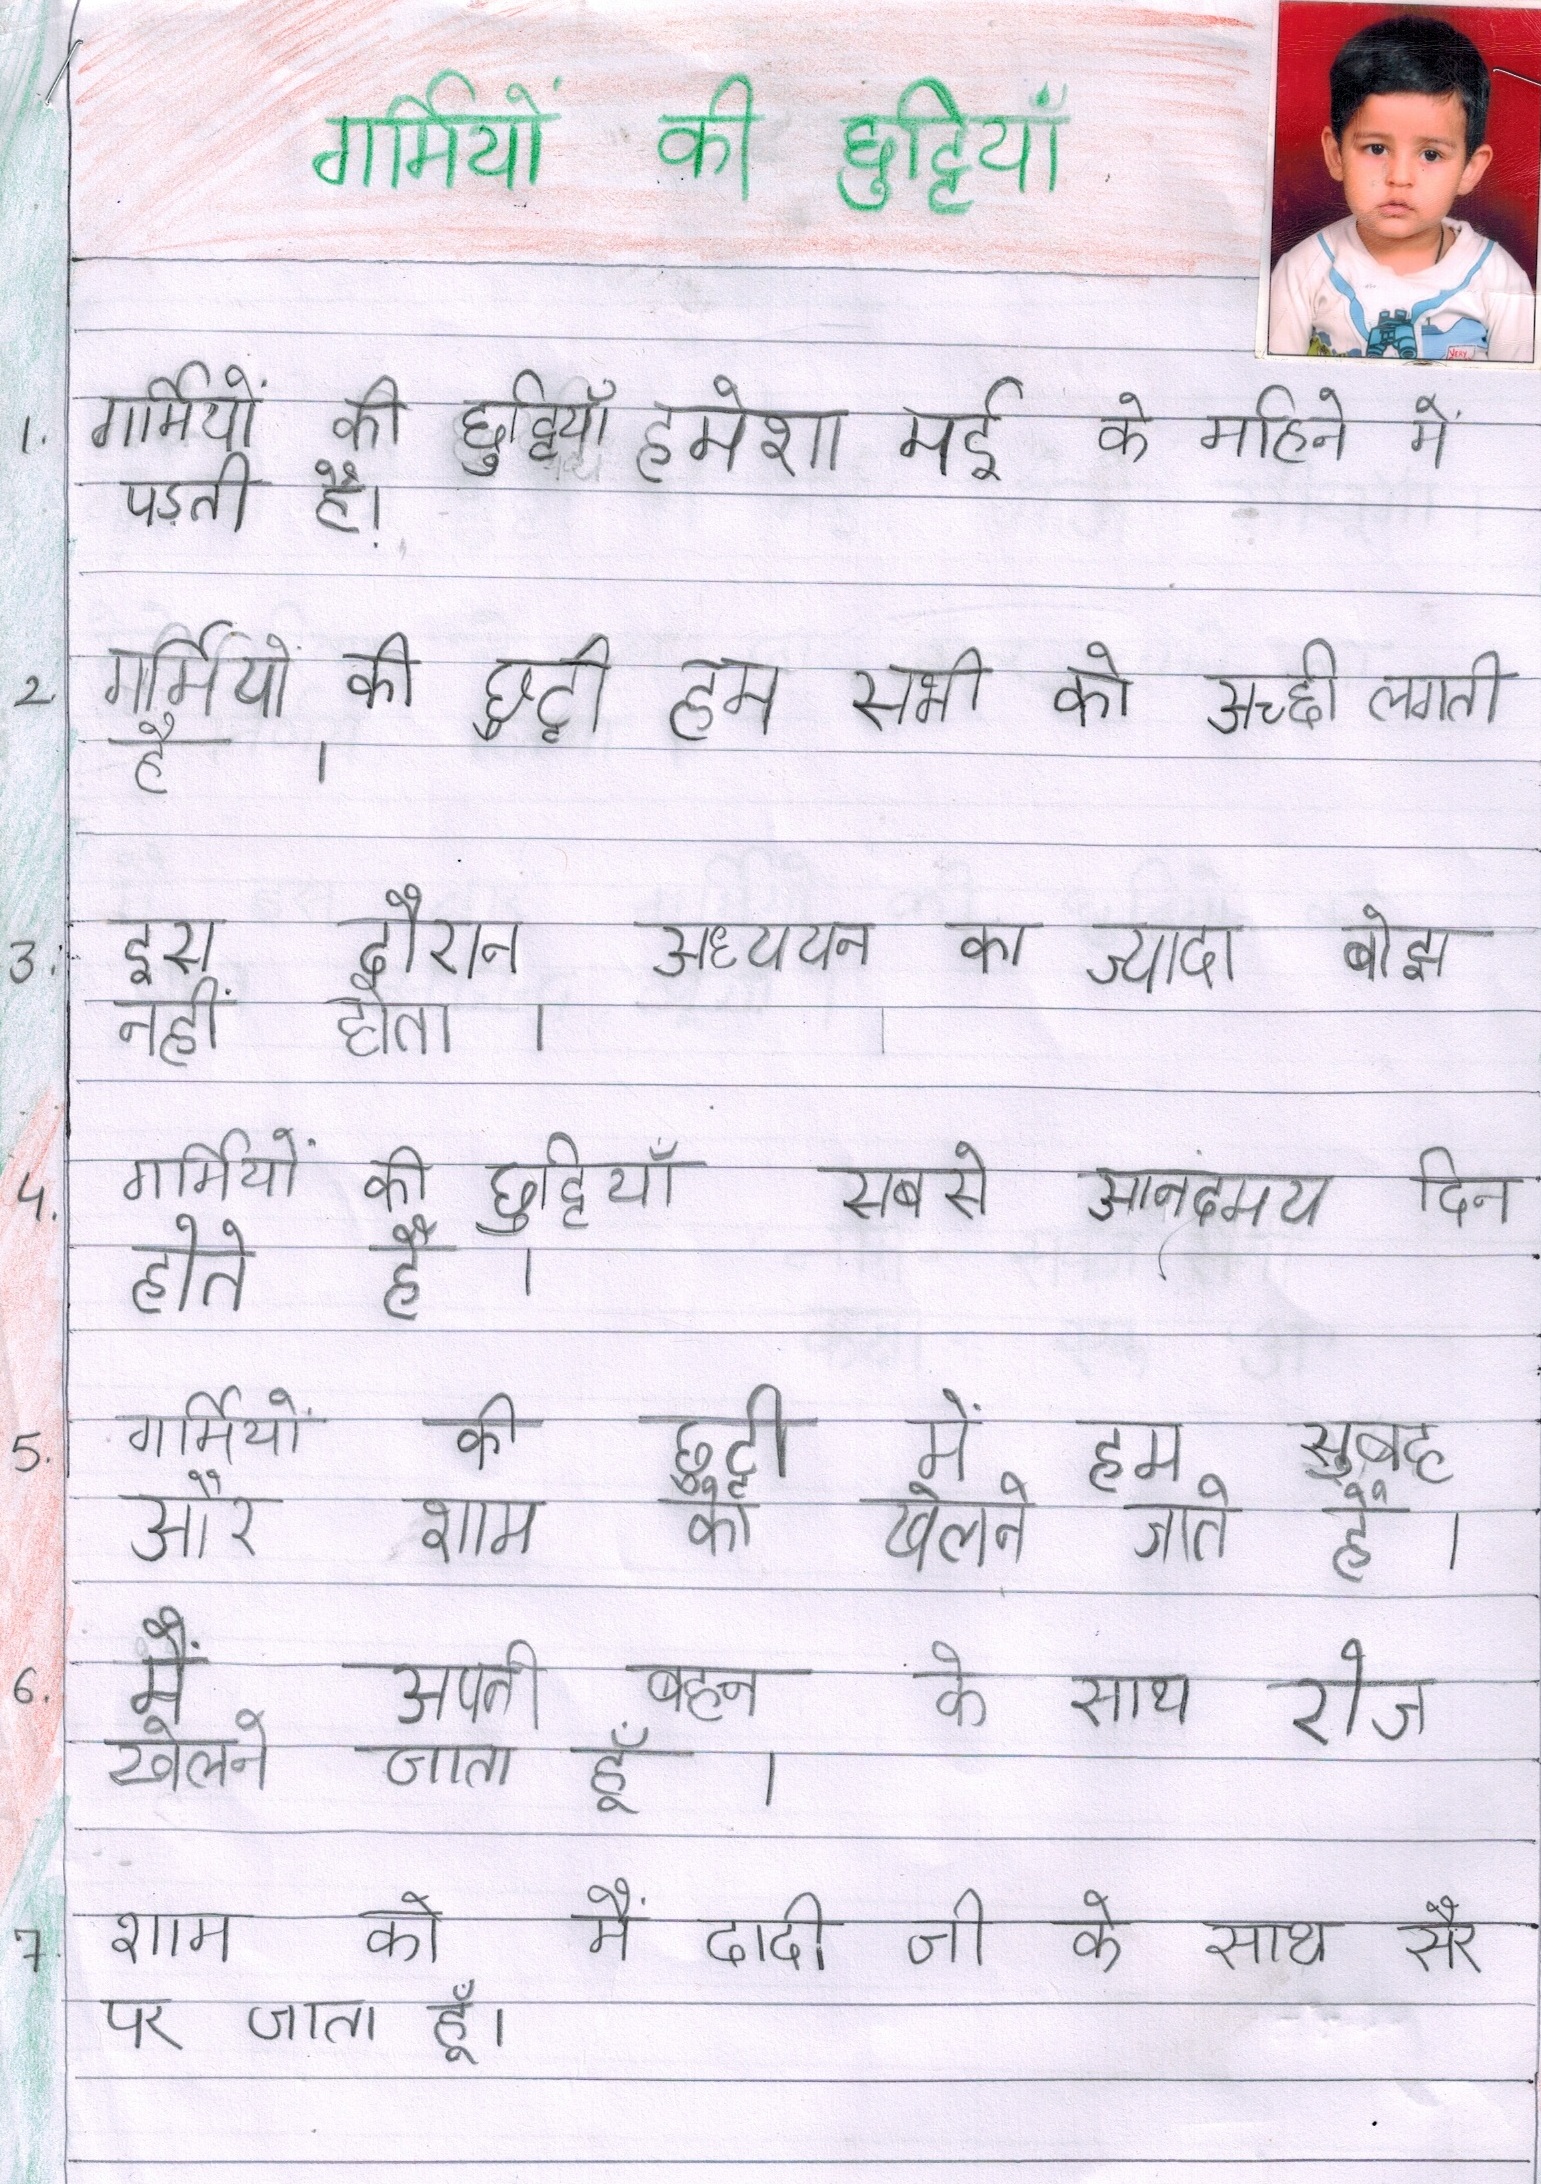 गर्मियों की छुट्टियाँ
1. गर्मियों की छुट्टियाँ हमेशा मई के महिने में
पड़ती है।
2. गर्मियों की छुट्टी हम सभी को अच्छी लगती
है ।
3. इस दौरान अध्ययन का ज्यादा बोझ
नहीं होता ।
4. गर्मियों की छुट्टियाँ सबसे आनदंमय दिन
होते है ।
5. गर्मियों की छुट्टी में हम सुबह
और शाम को खेलने जाते है ।
6. मैं अपनी बहन के साथ रोज
खेलने जाता हूँ ।
7. शाम को मैं दादी जी के साथ सैर
पर जाता हूँ।
VERY